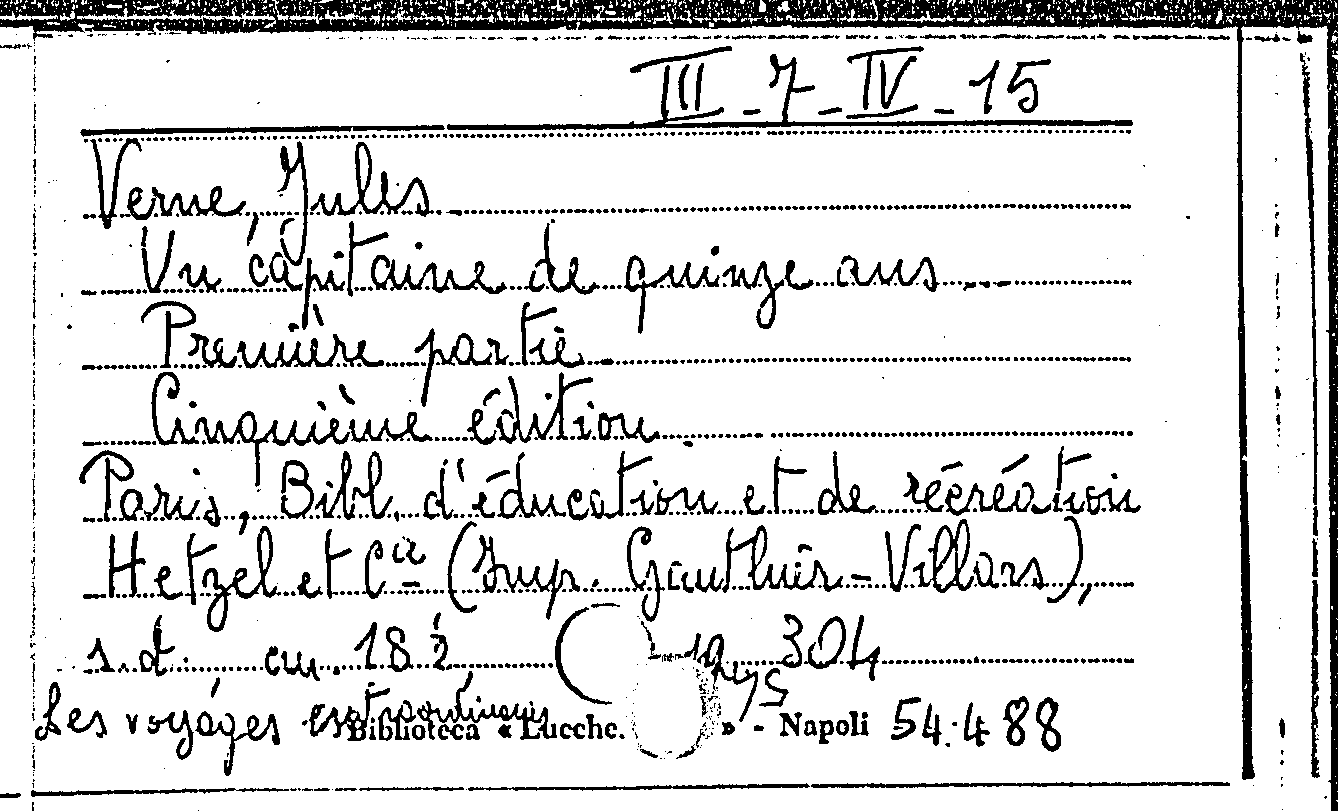 III - 7 - IV - 15
Verne, Jules
Un capitaine de quinze ans
Première partie
Cinquième édition
Paris, Bibl. d'éducation et de récréation
Hetzel et Cⁱᵃ (Imp. Gauthier-Villars),
s.d., cm. 18½, pg. 304
Les voyages extraordinaires
Biblioteca « Lucche. » - Napoli 54.488